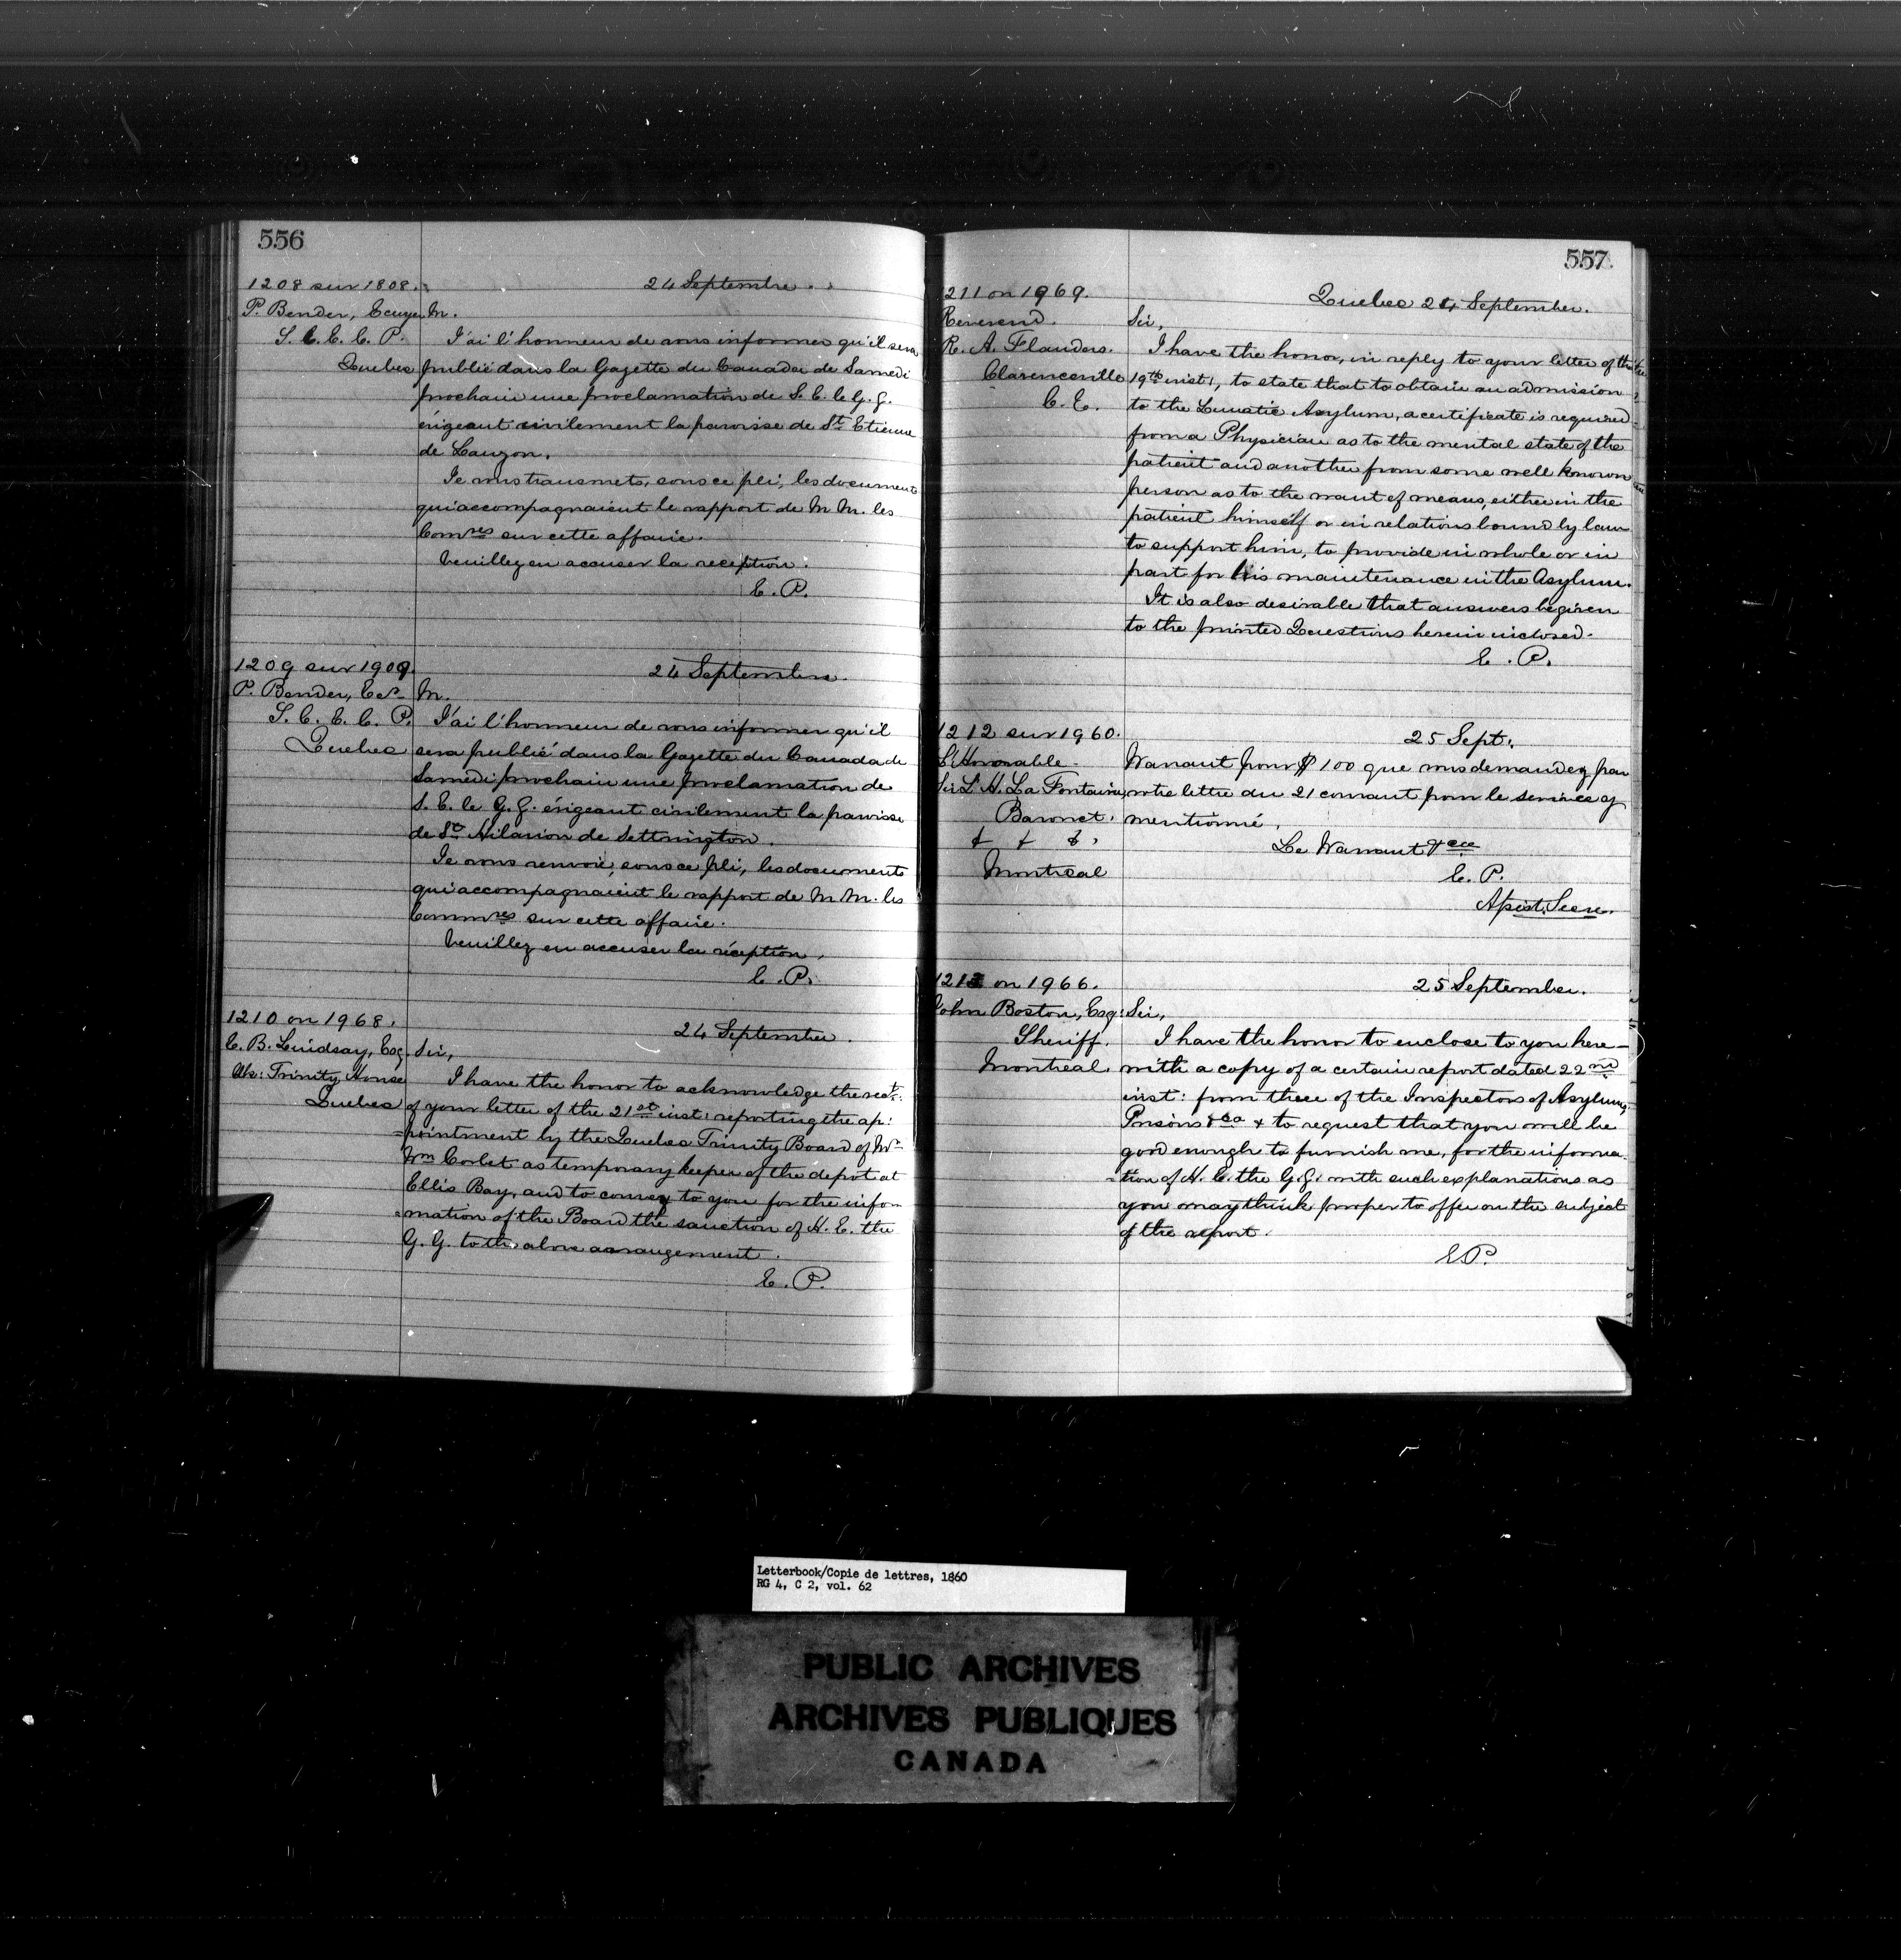 556
1208 sur 1808.
24 Septembre.
P. Bender, Ecuyer
S. C. E. C. P.
Quebec
M.
J'ai l'honneur de vous informer qu'il sera
publié dans la Gazette du Canada de Samedi
prochain une proclamation de S. E. le G. G.
érigeant civilement la paroisse de St. Etienne
de Lauzon.
Je vous transmets, sous ce pli, les documents
qui accompagnaient le rapport de M M. les
Comres sur cette affaire.
Veuillez en accuser la reception.
E. P.
1209 sur 1909.
24 Septembre.
P. Bender, Ecr
S. C. E. C. P.
Quebec
M.
J'ai l'honneur de vous informer qu'il
sera publié dans la Gazette du Canada de
Samedi prochain une proclamation de
S. E. le G. G. érigeant civilement la paroisse
de St. Hilarion de Settrington.
Je vous renvoie, sous ce pli, les documents
qui accompagnaient le rapport de M M. les
Commres sur cette affaire.
Veuillez en accuser la réception.
E. P.
1210 on 1968.
24 September.
E. B. Lindsay, Esq.
Clk: Trinity House
Quebec
Sir,
I have the honor to acknowledge the rect:
of your letter of the 21st inst: reporting the ap:
=pointment by the Quebec Trinity Board of Mr
Wm Corbet as temporary keeper of the depot at
Ellis Bay, and to convey to you for the infor
=mation of the Board the sanction of H. E. the
G. G. to the above arrangement.
E. P.
557
211 on 1969.
Quebec 24 September.
Reverend
R. A. Flanders.
Clarenceville
C. E.
Sir,
I have the honor, in reply to your letter of the
19th inst:, to state that to obtain an admission
to the Lunatic Asylum, a certificate is required
from a Physician as to the mental state of the
patient and another from some well known
person as to the want of means, either in the
patient himself or in relations bound by law
to support him, to provide in whole or in
part for his maintenance in the Asylum.
It is also desirable that answers be given
to the printed Questions herein inclosed.
E. P.
1212 sur 1960.
25 Sept.
L'Honorable
Sir L. H. La Fontaine,
Baronet.
& & &.
Montreal
Warrant pour $100 que vous demandez par
votre lettre du 21 courant pour le service y
mentionné.
Le Warrant &ca
E. P.
Assist. Secre.
1213 on 1966.
25 September.
John Boston, Esq:
Sheriff.
Montreal.
Sir,
I have the honor to enclose to you here-
with a copy of a certain report dated 22nd
inst: from three of the Inspectors of Asylums,
Prisons &ca & to request that you will be
good enough to furnish me, for the informa-
=tion of H. E. the G. G. with such explanations as
you may think proper to offer on the subject
of the report.
E P.
Letterbook/Copie de lettres, 1860
RG 4, C 2, vol. 62
PUBLIC ARCHIVES
ARCHIVES PUBLIQUES
CANADA